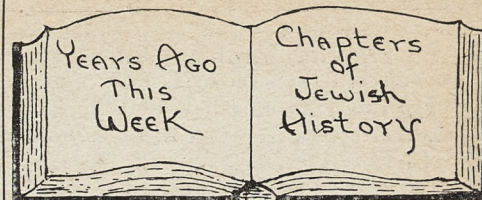 Years Ago
This
Week
Chapters
of
Jewish
History